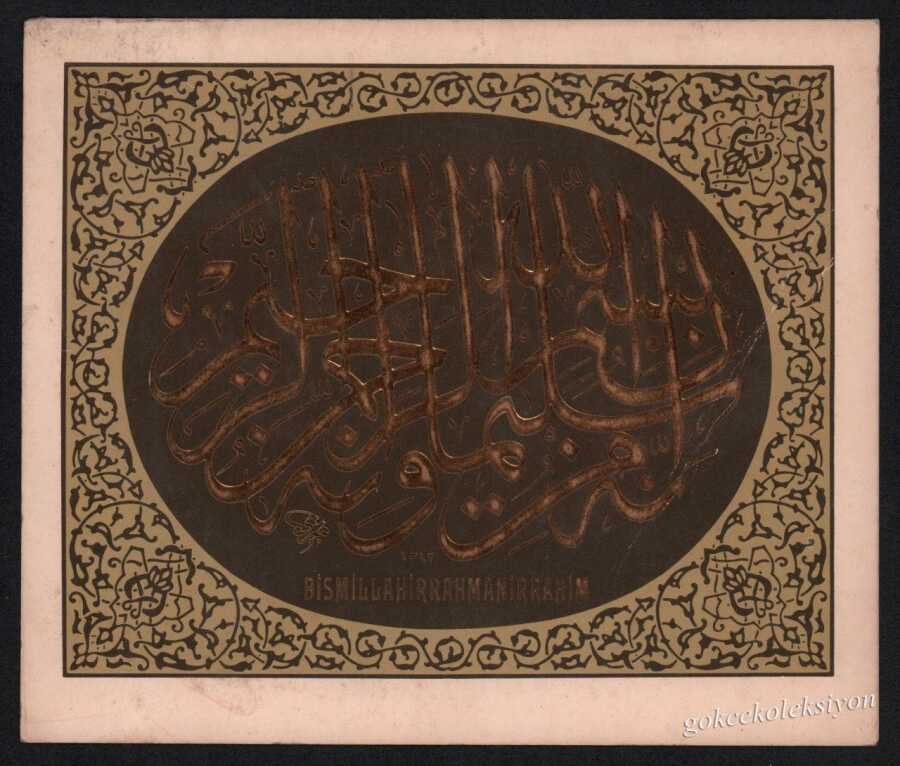 انه من سليمن وانه بسم الله الرحمن الرحيم
BİSMİLLAHİRRAHMANİRRAHİM
gokcekoleksiyon